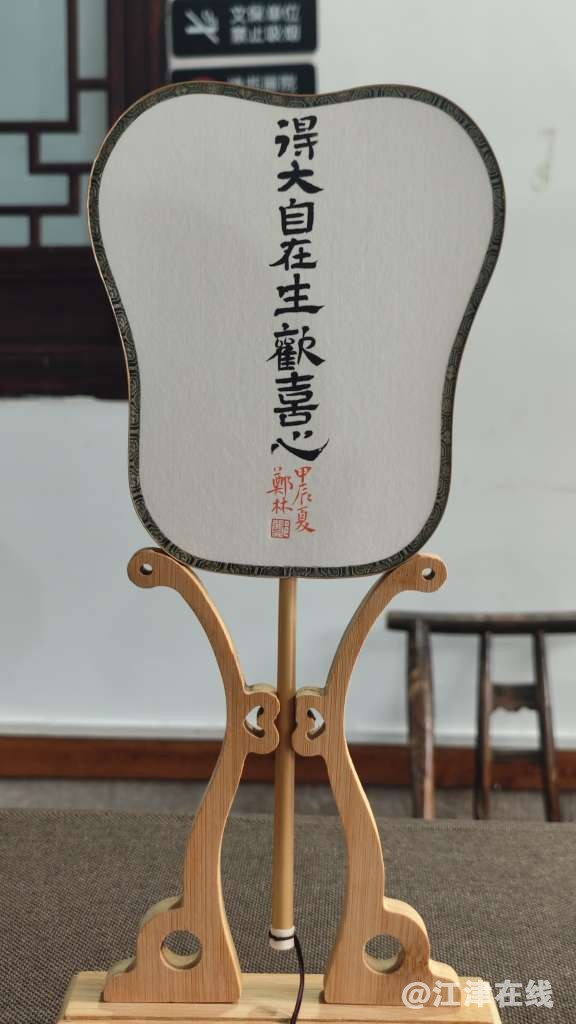 文保单位
禁止吸烟
得大自在生歡喜心
甲辰夏
鄭林
@江津在线